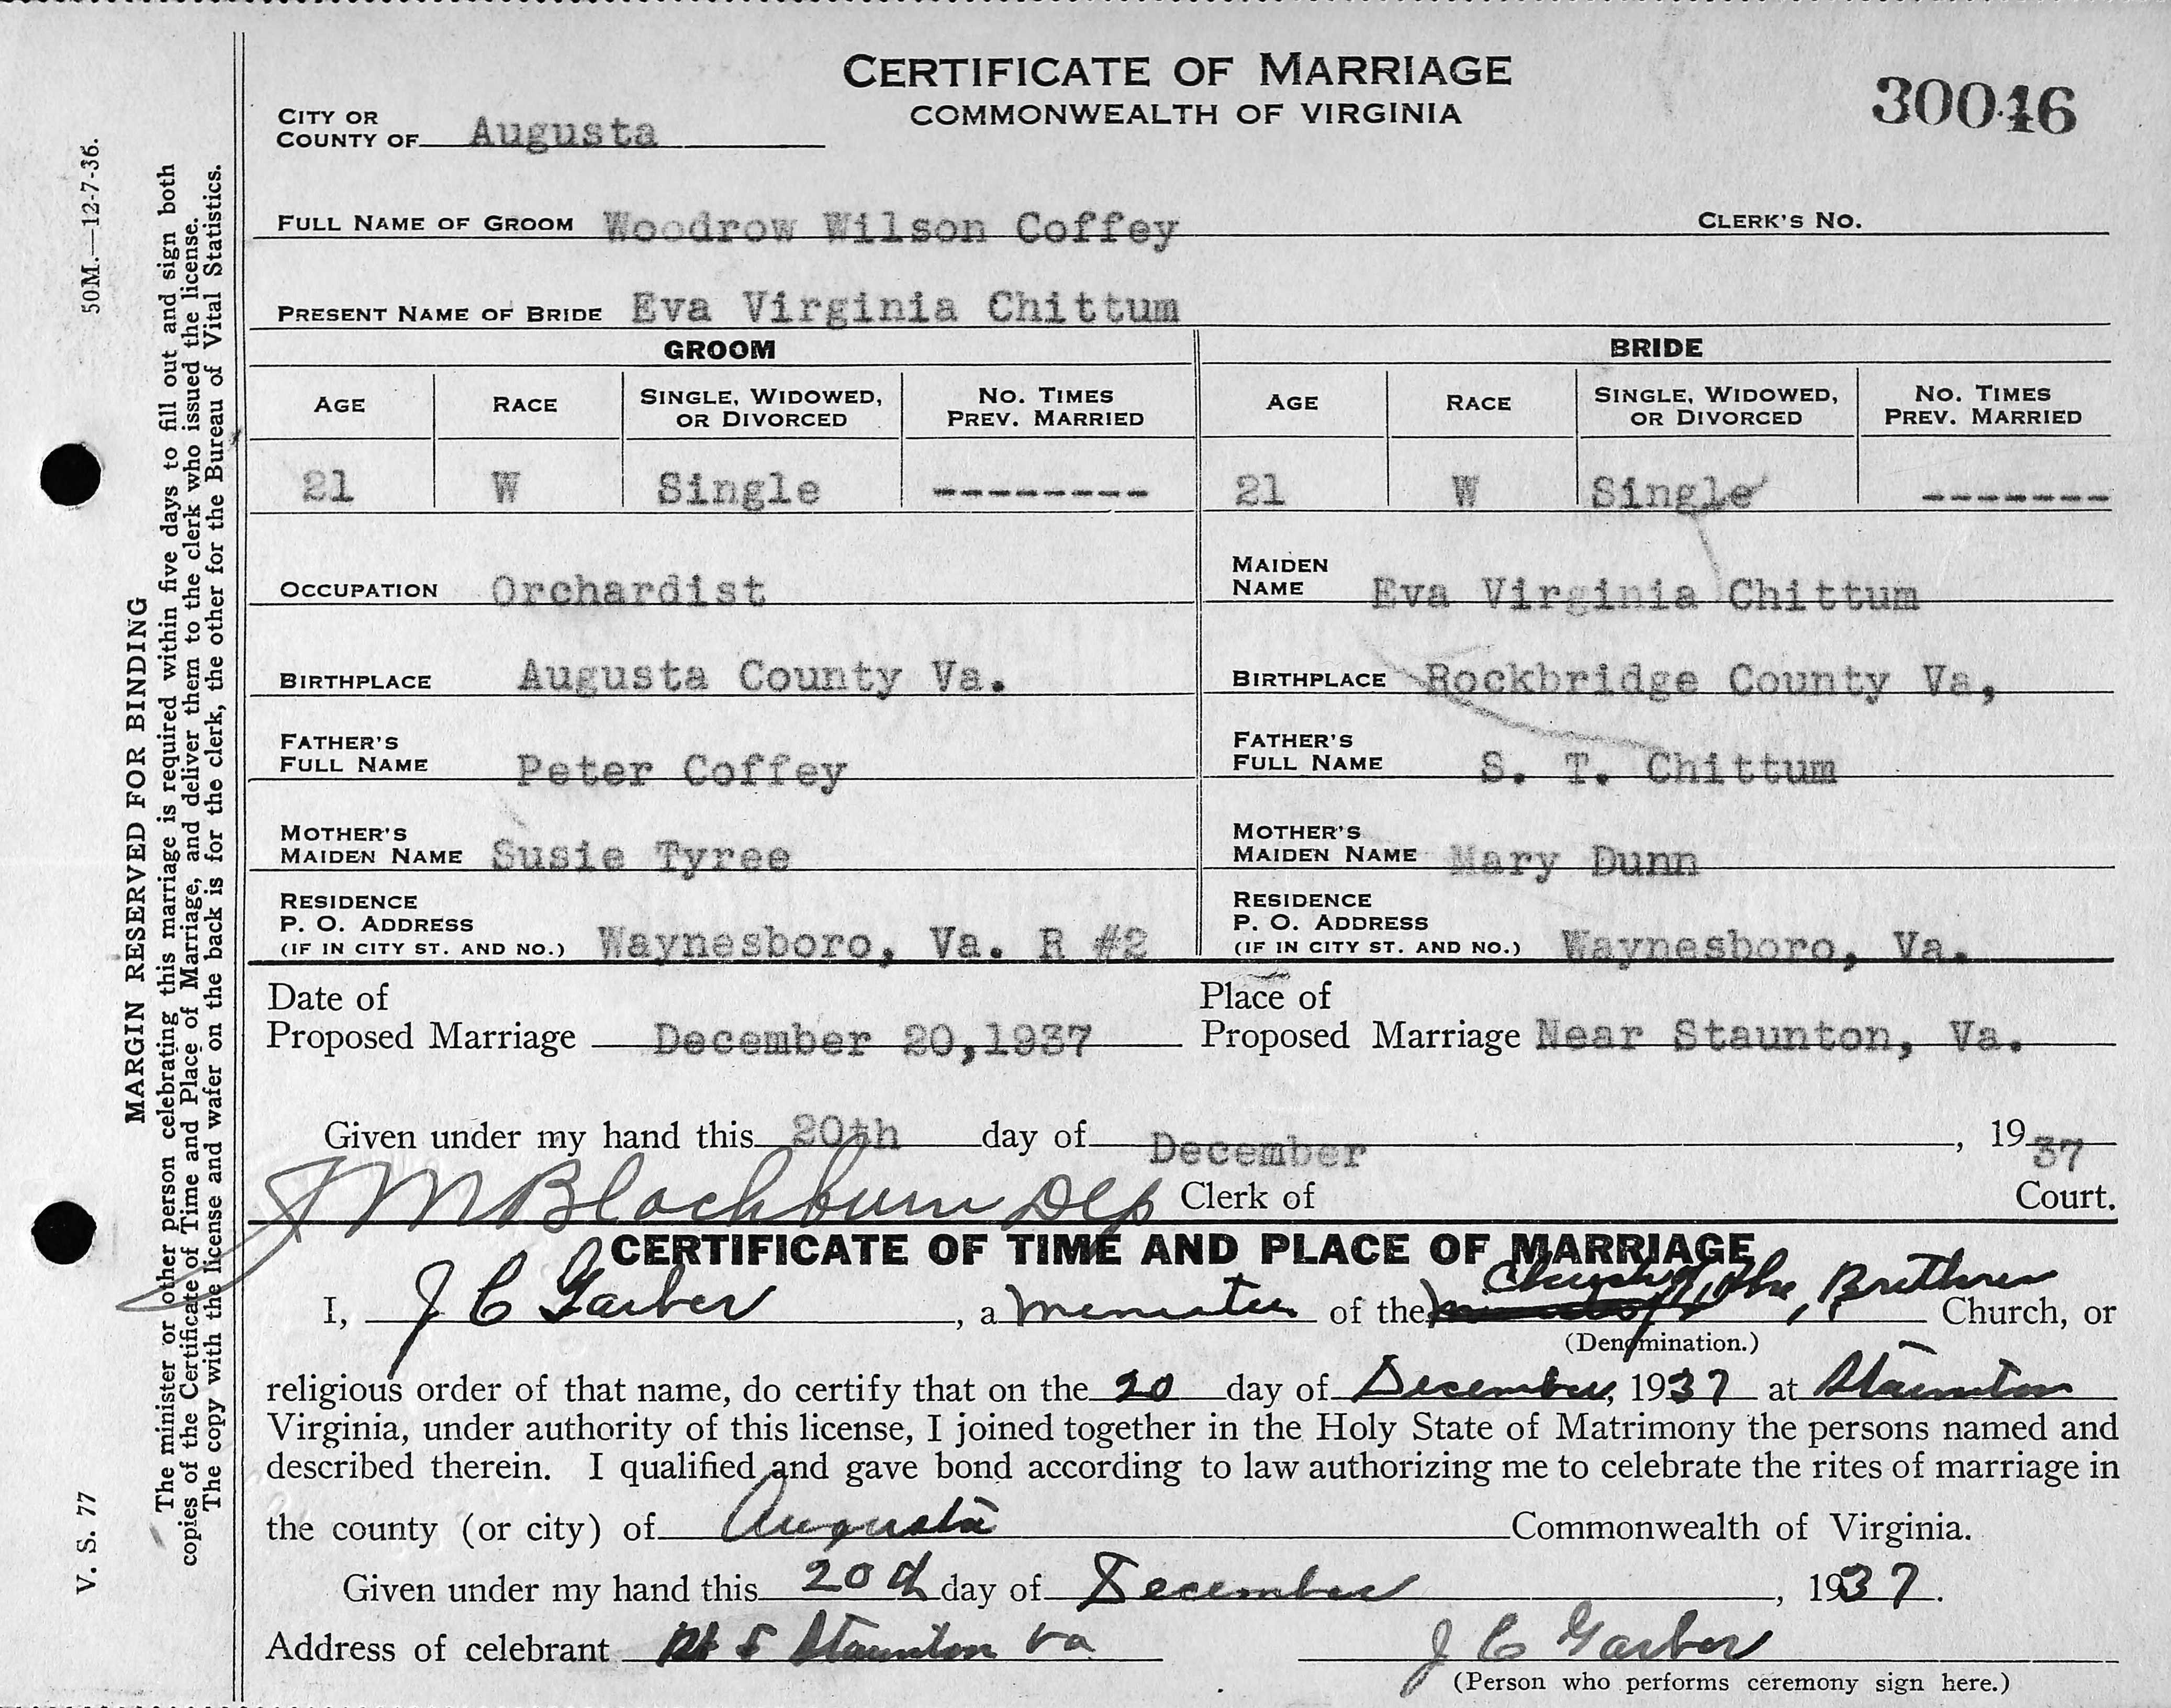 CERTIFICATE OF MARRIAGE
COMMONWEALTH OF VIRGINIA
30046
CITY OR
COUNTY OF Augusta
FULL NAME OF GROOM Woodrow Wilson Coffey CLERK'S NO.
PRESENT NAME OF BRIDE Eva Virginia Chittum
GROOM BRIDE
AGE RACE SINGLE, WIDOWED, OR DIVORCED NO. TIMES PREV. MARRIED AGE RACE SINGLE, WIDOWED, OR DIVORCED NO. TIMES PREV. MARRIED
21 W Single -------- 21 W Single -------
OCCUPATION Orchardist
MAIDEN NAME Eva Virginia Chittum
BIRTHPLACE Augusta County Va.
BIRTHPLACE Rockbridge County Va,
FATHER'S FULL NAME Peter Coffey
FATHER'S FULL NAME S. T. Chittum
MOTHER'S MAIDEN NAME Susie Tyree
MOTHER'S MAIDEN NAME Mary Dunn
RESIDENCE
P. O. ADDRESS
(IF IN CITY ST. AND NO.) Waynesboro, Va. R #2
RESIDENCE
P. O. ADDRESS
(IF IN CITY ST. AND NO.) Waynesboro, Va.
Date of
Proposed Marriage December 20,1937
Place of
Proposed Marriage Near Staunton, Va.
Given under my hand this 20th day of December, 1937
J M Blackburn Dep Clerk of Court.
CERTIFICATE OF TIME AND PLACE OF MARRIAGE
I, J C Garber, a Menester of the Church of the Brethren Church, or
(Denomination.)
religious order of that name, do certify that on the 20 day of December, 1937 at Staunton
Virginia, under authority of this license, I joined together in the Holy State of Matrimony the persons named and
described therein. I qualified and gave bond according to law authorizing me to celebrate the rites of marriage in
the county (or city) of Augusta Commonwealth of Virginia.
Given under my hand this 20th day of December, 1937.
Address of celebrant Rt 5 Staunton Va J C Garber
(Person who performs ceremony sign here.)
50M.—12-7-36.
MARGIN RESERVED FOR BINDING
The minister or other person celebrating this marriage is required within five days to fill out and sign both
copies of the Certificate of Time and Place of Marriage, and deliver them to the clerk who issued the license.
The copy with the license and wafer on the back is for the clerk, the other for the Bureau of Vital Statistics.
V. S. 77